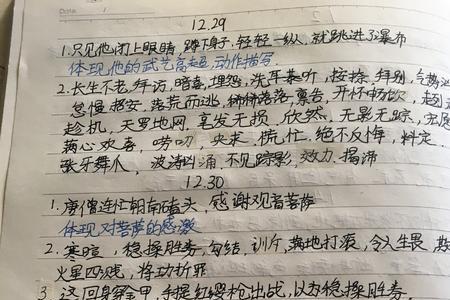 12.29
1.只见他闭上眼睛,蹲下身子,轻轻一纵,就跳进了瀑布
体现他的武艺高超,动作描写.
2.长生不老,拜访,暗喜,埋怨,洗耳恭听,按捺,拜别,气势汹
怠慢,招安,落荒而逃,大大咧咧,禀告,开怀畅饮,
趁机,天罗地网,毫发无损,欣然,无影无踪,
满心欢喜,唠叨,央求,慌忙,绝不反悔,料定,
张牙舞爪,波涛汹涌,不见踪影,效力,揭谛
12.30
1.唐僧连忙朝南磕头,感谢观音菩萨
体现对菩萨的感激
2.寒暄,稳操胜券,勾结,训斥,满地打滚,令人生畏,欺
火星四溅,将功折罪
3 这回身穿金甲,手提红缨枪出战,以为稳操胜券,